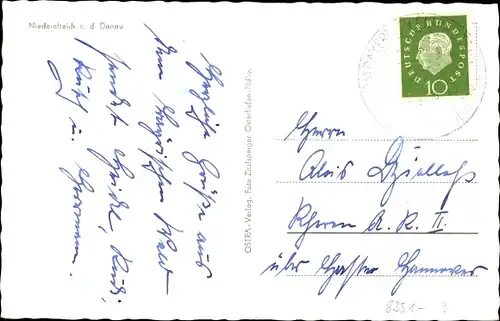 Niederalteich a. d. Donau
Herzliche Grüße aus
dem bayrischen Wald
sendet Heidi, Rudi,
Ruth u. Hermann.
OSTRA-Verlag, Foto Zitzlsperger Osterhofen-Ndby.
DEUTSCHE BUNDESPOST
10
Herrn
Alois
A. K. II.
über Hannover
8351-